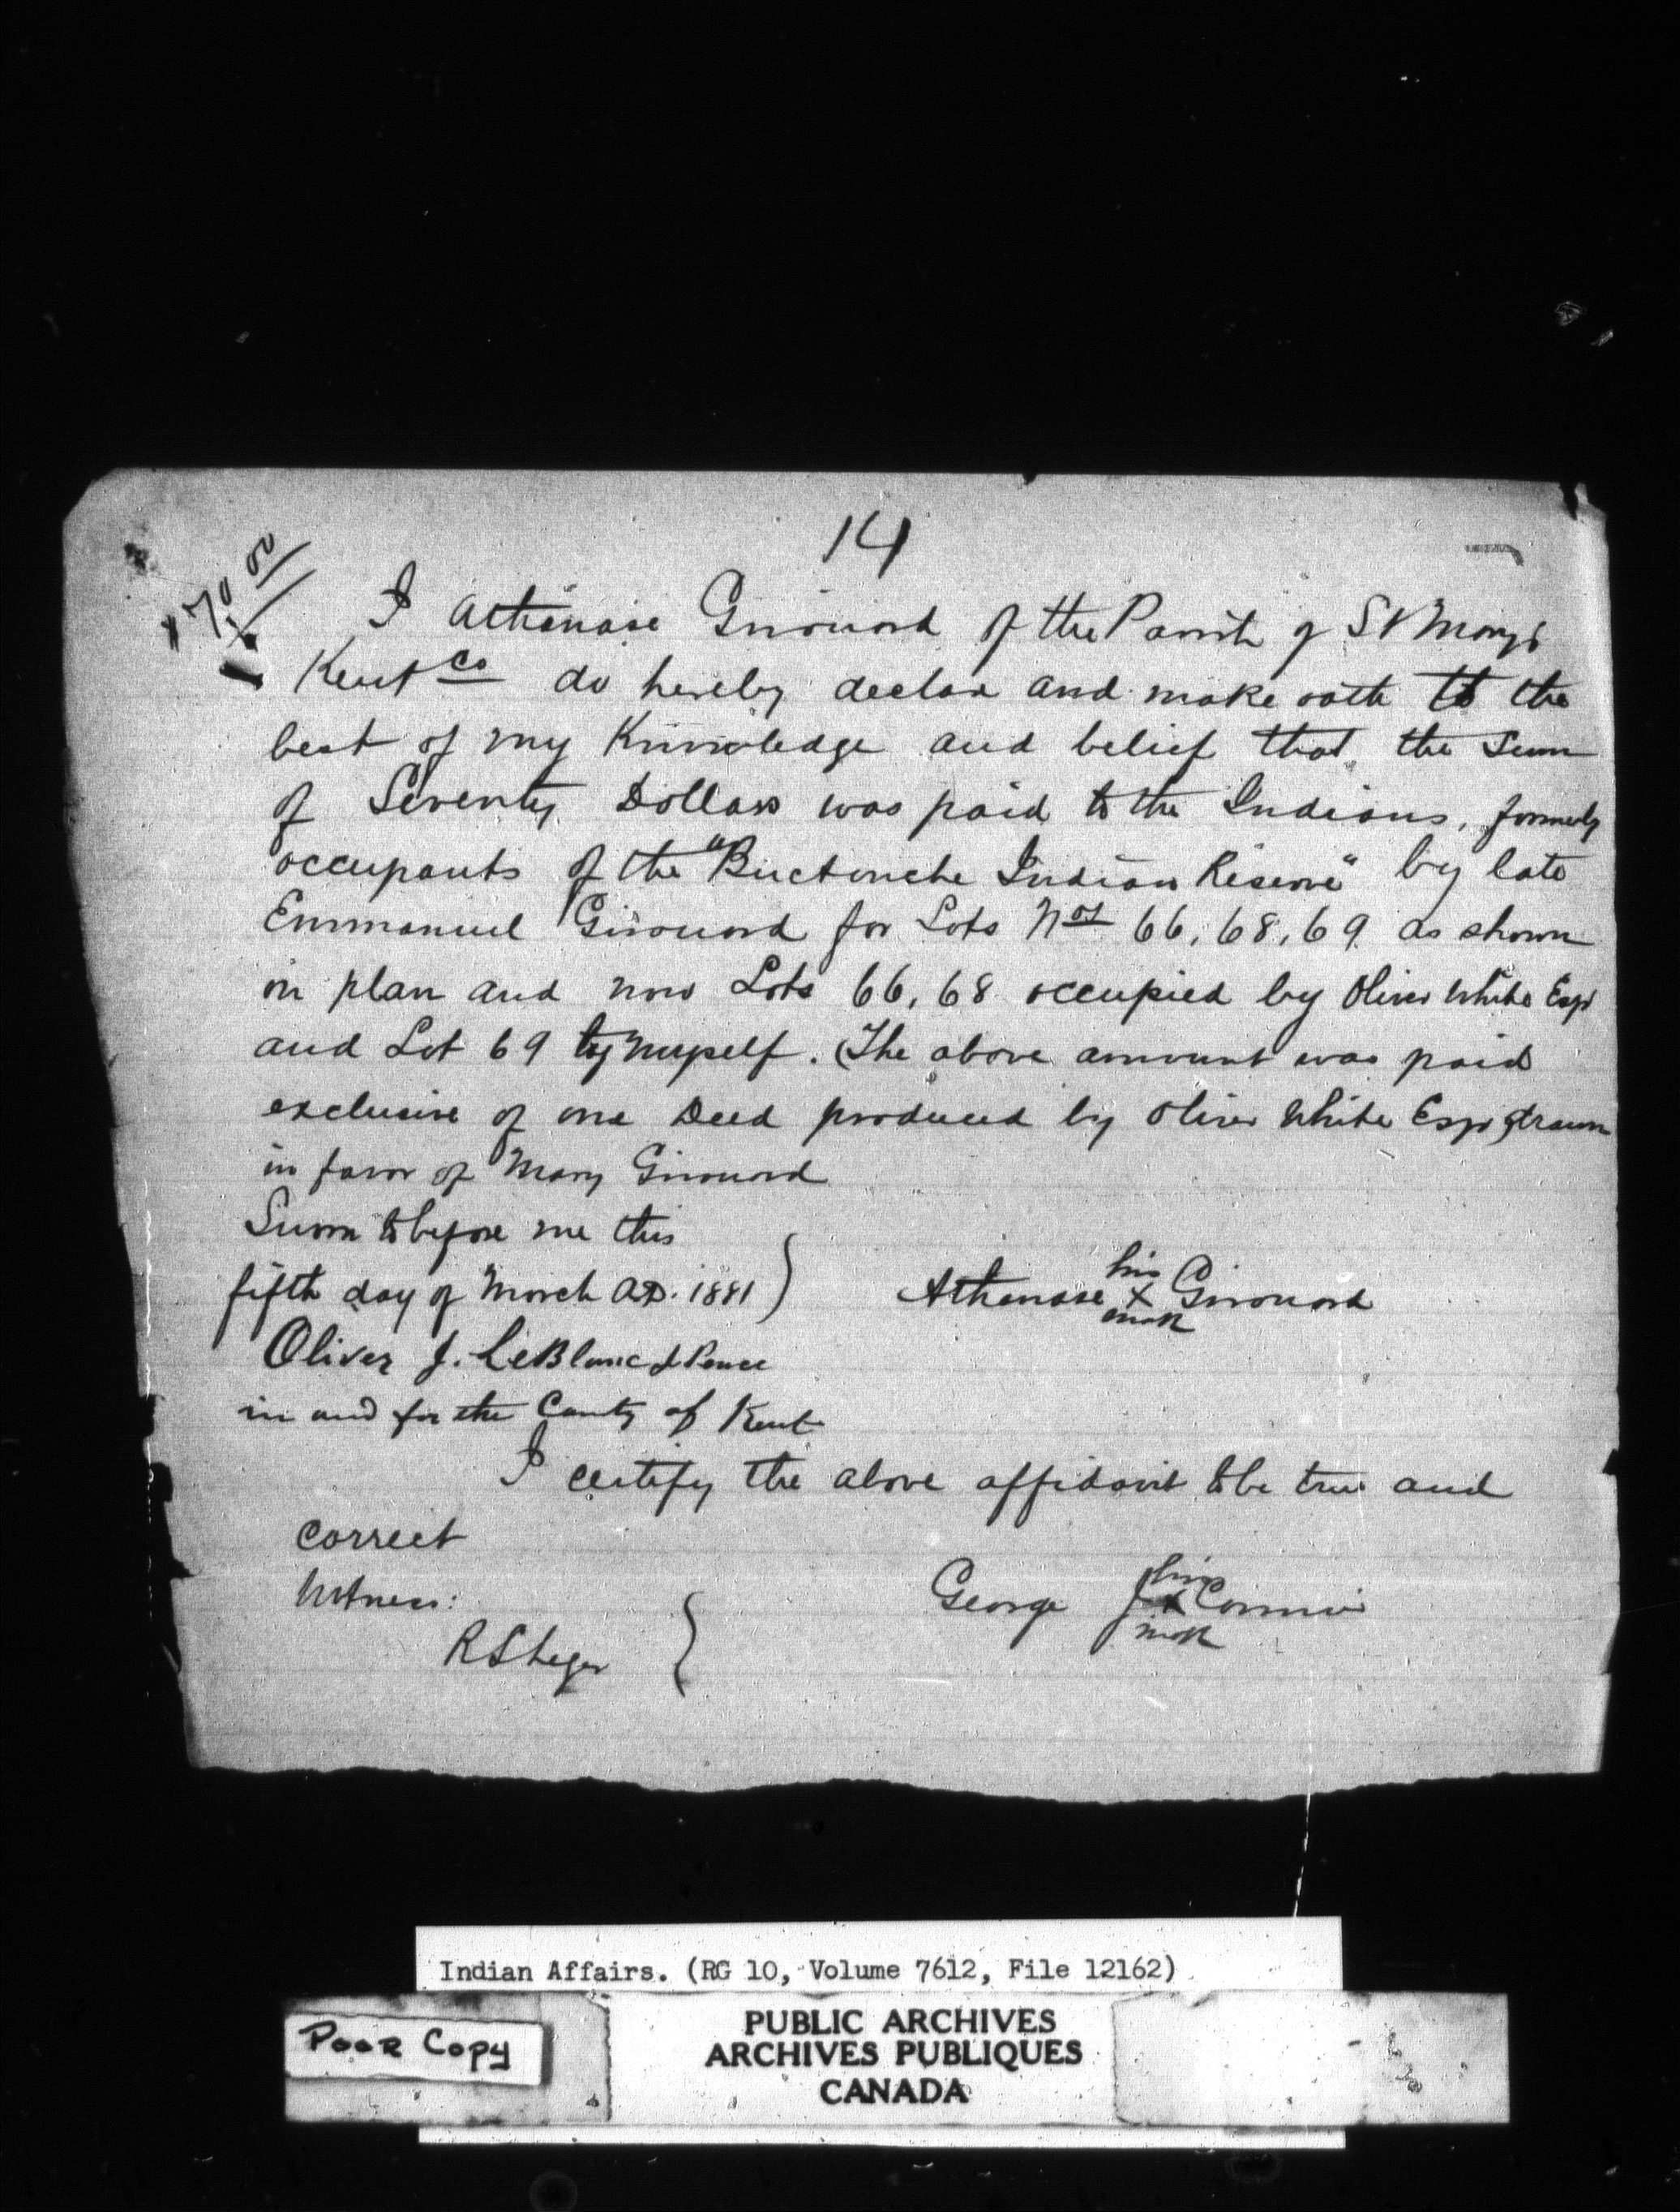 14
$70.00
I Athanase Girouard of the Parish of St Marys
Kent Co do hereby declar and make oath to the
best of my Knowledge and belief that the Sum
of Seventy Dollars was paid to the Indians, formerly
occupants of the "Buctouche Indian Reserve" by late
Emmanuel Girouard for Lots Nos 66, 68, 69 as shown
on plan and now Lots 66, 68 occupied by Oliver White Esqr
and Lot 69 by myself. (The above amount was paid
exclusive of one Deed produced by Oliver White Esqr
in favor of Mary Girouard
Sworn to before me this
fifth day of March A.D. 1881
Athanase his X mark Girouard
Oliver J. LeBlanc J Peace
in and for the County of Kent
I certify the above affidavit to be true and
correct
Witness:
George J his X mark Cormier
R S Leger
Indian Affairs. (RG 10, Volume 7612, File 12162)
Poor Copy
PUBLIC ARCHIVES
ARCHIVES PUBLIQUES
CANADA